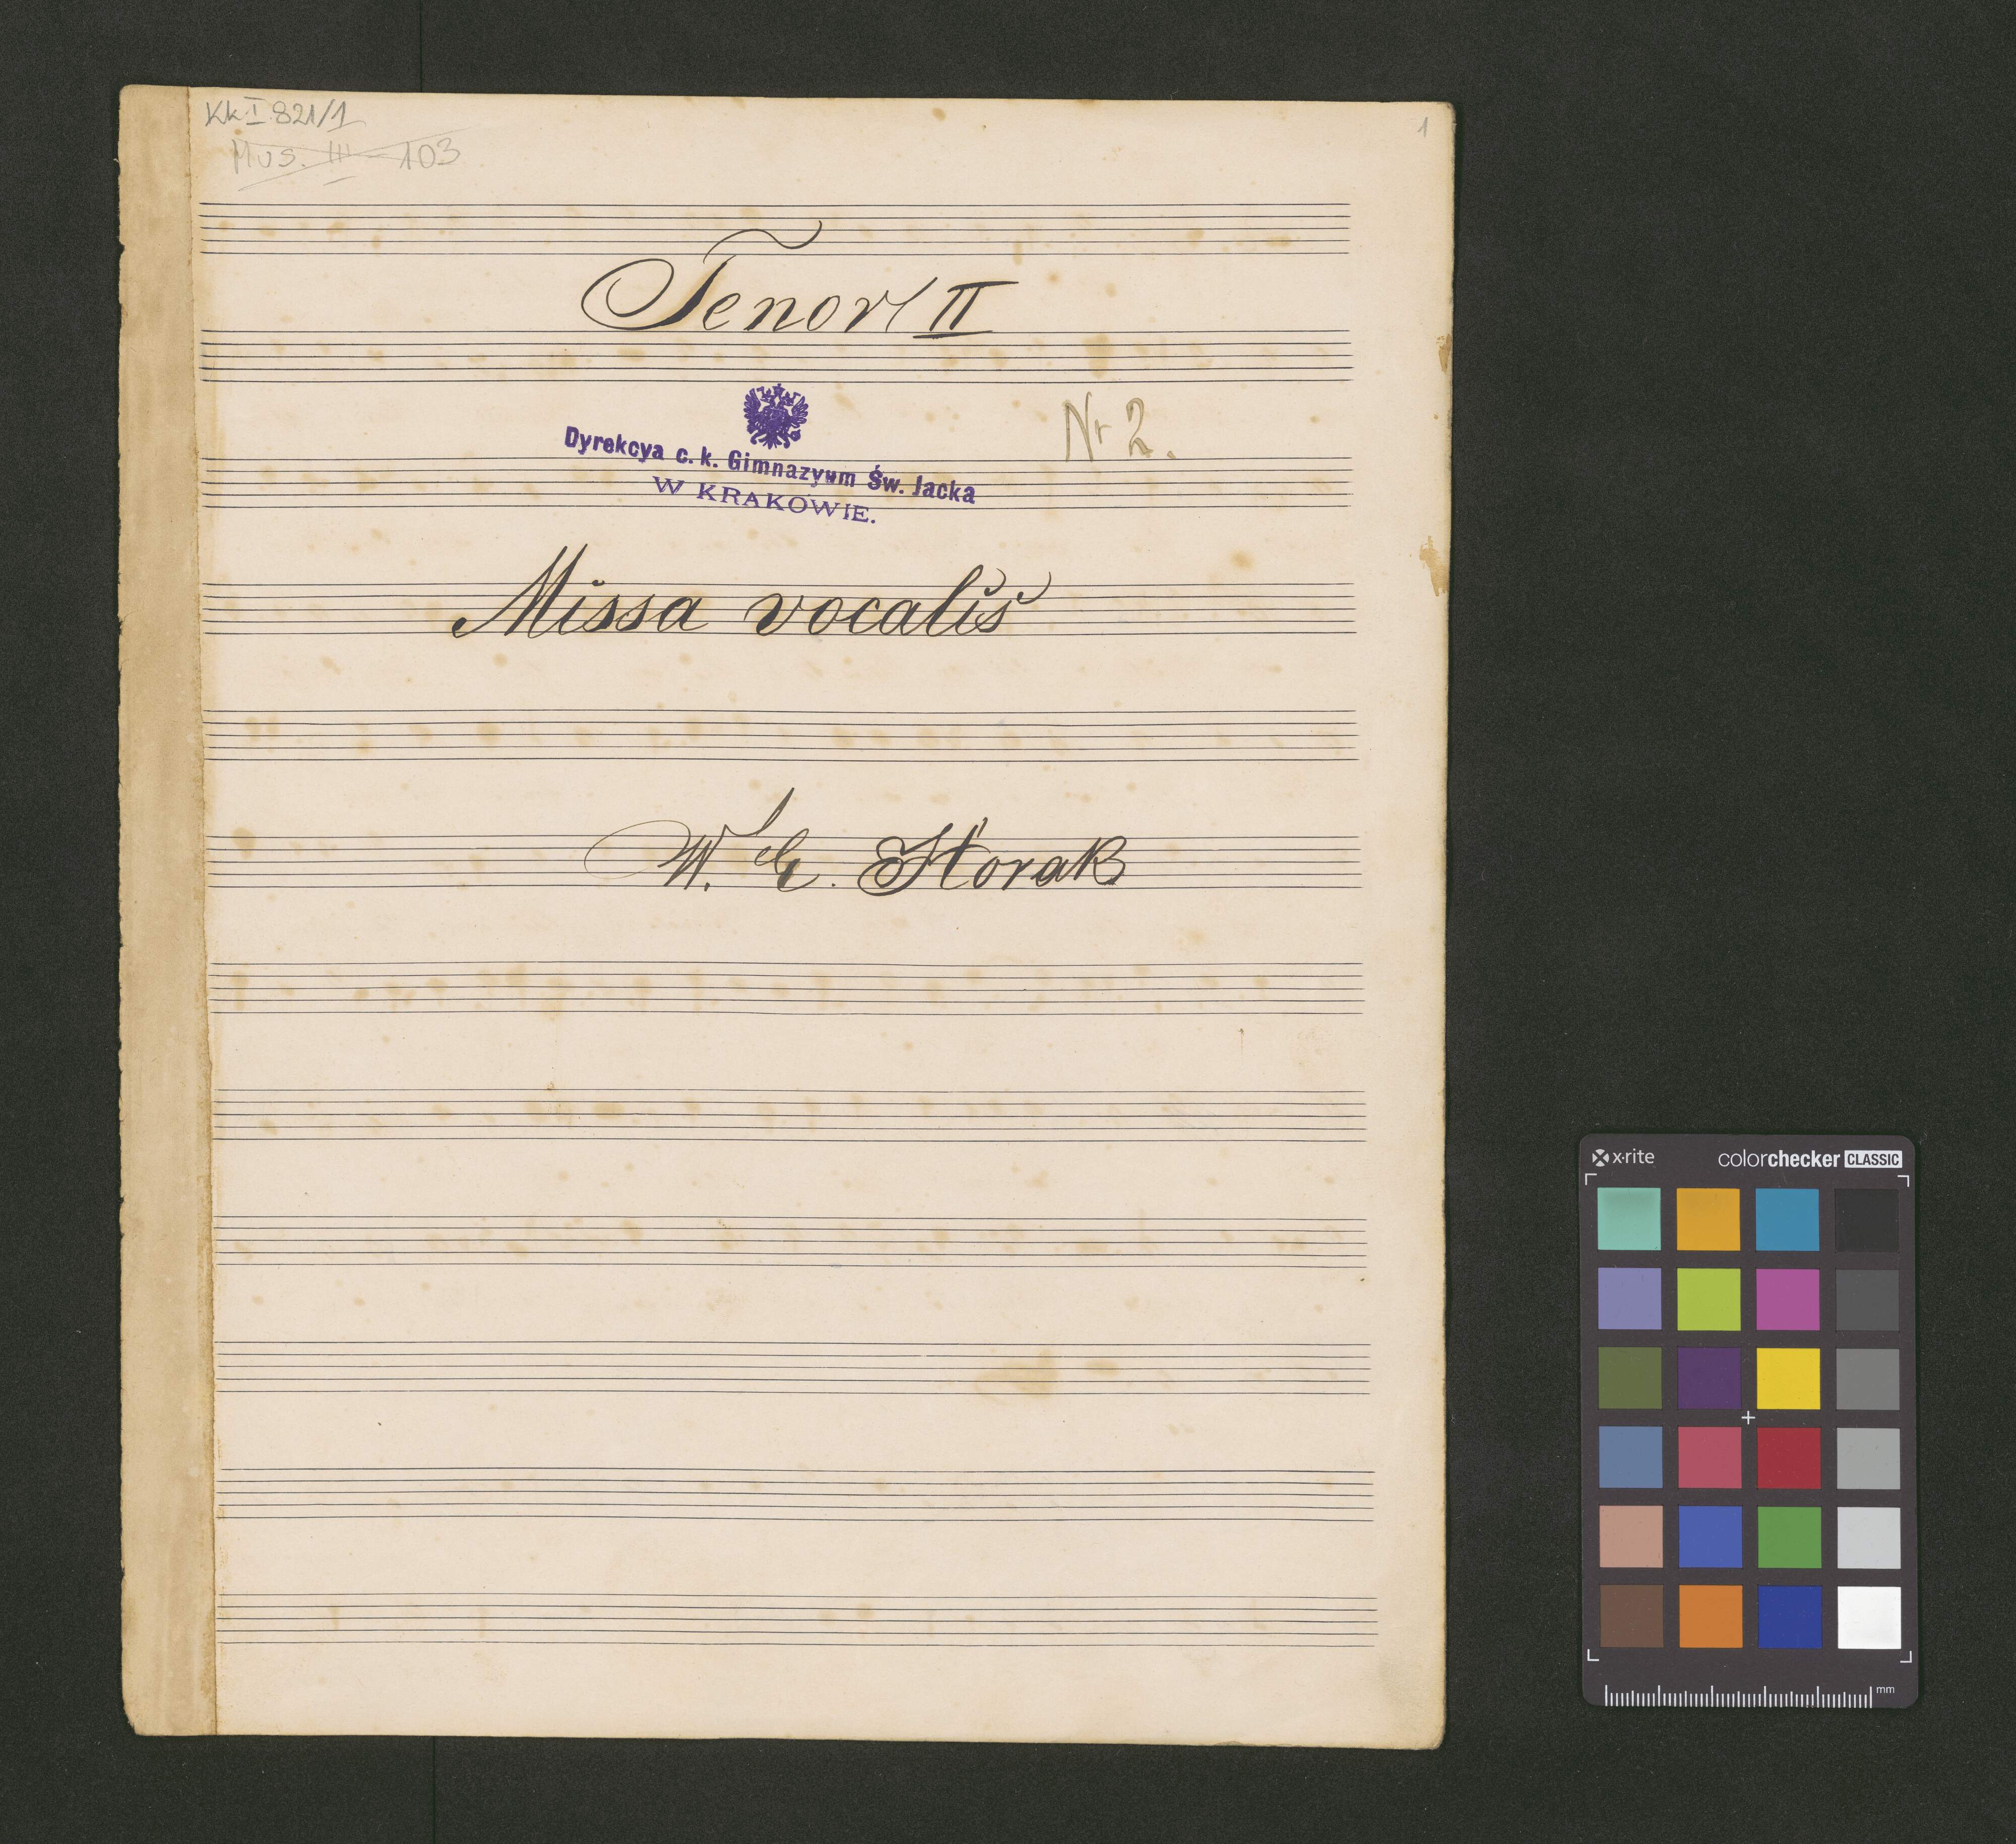 Kk I 821/1
1
Mus. III - 103
Tenor II
Nr 2.
Dyrekcya c. k. Gimnazyum Św. Jacka
W KRAKOWIE.
Missa vocalis
W. E. Horak
x-rite
colorchecker CLASSIC
mm